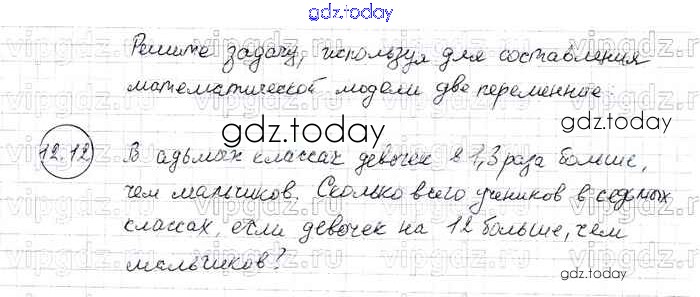 gdz.today
Решите задачу, используя для составления
математической модели две переменные:
gdz.today
12.12
В адьмых классах девочек в 1,3 раза больше,
чем мальчиков. Сколько всего учеников в седьмых
классах, если девочек на 12 больше, чем
мальчиков?
gdz.today